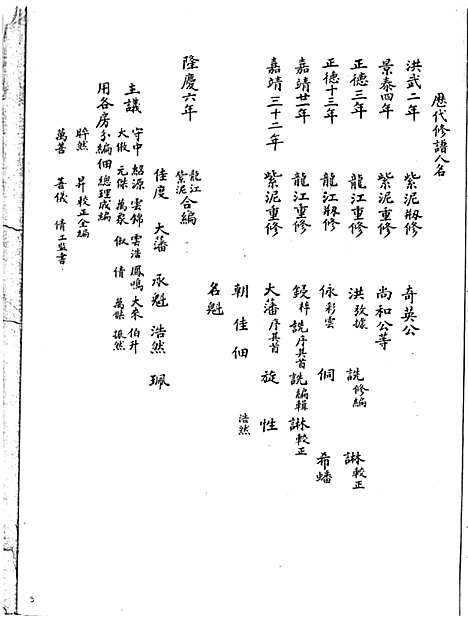 歷代修譜人名
洪武二年 紫泥剏修 奇英公
景泰四年 紫泥重修 尚和公等
正德三年 龍江重修 洪攷據 詵修編 諃較正
正德十三年 龍江剏修 佅彩雲 侗 希蟠
嘉靖廿一年 龍江重修 鋟梓 詵序其首 詵編輯 諃較正
嘉靖三十二年 紫泥重修 大藩序其首 旋 性
朝 佳 佃 浩然
名魁
隆慶六年 龍江紫泥合編 佳度 大藩 承魁 浩然 珮
主議 守中 紹源 雲錦 雲浩 鳳鳴 大來 伯升
大傲 元傑 萬象 俶 倩 萬傑 振然
用各房分編 佃總理成編
睟然 昇 校正全編
萬善 善儀 倩工監書
5